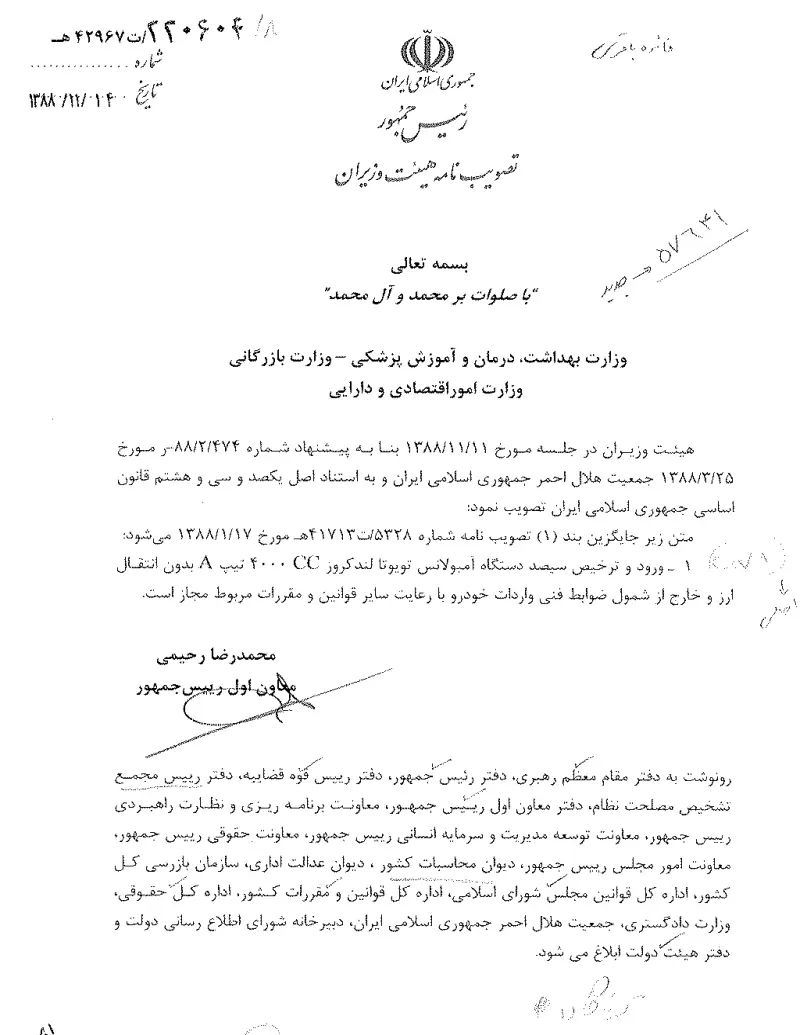 ۲۲۰۶۰۴/ت۴۲۹۶۷هـ
شماره ................
تاریخ ۱۳۸۸/۱۲/۰۴
جمهوری اسلامی ایران
رئیس جمهور
تصویب نامه هیئت وزیران
جدید ← ۵۷۶۴۱
بسمه تعالی
"با صلوات بر محمد و آل محمد"
وزارت بهداشت، درمان و آموزش پزشکی – وزارت بازرگانی
وزارت اموراقتصادی و دارایی
هیئت وزیران در جلسه مورخ ۱۳۸۸/۱۱/۱۱ بنا به پیشنهاد شماره ۸۸/۲/۴۷۴-ر مورخ
۱۳۸۸/۳/۲۵ جمعیت هلال احمر جمهوری اسلامی ایران و به استناد اصل یکصد و سی و هشتم قانون
اساسی جمهوری اسلامی ایران تصویب نمود:
متن زیر جایگزین بند (۱) تصویب نامه شماره ۵۳۲۸/ت۴۱۷۱۳هـ مورخ ۱۳۸۸/۱/۱۷ می‌شود:
۱ ـ ورود و ترخیص سیصد دستگاه آمبولانس تویوتا لندکروز ۴۰۰۰ CC تیپ A بدون انتقال
ارز و خارج از شمول ضوابط فنی واردات خودرو با رعایت سایر قوانین و مقررات مربوط مجاز است.
محمدرضا رحیمی
معاون اول رییس جمهور
رونوشت به دفتر مقام معظم رهبری، دفتر رئیس جمهور، دفتر رییس قوه قضاییه، دفتر رییس مجمع
تشخیص مصلحت نظام، دفتر معاون اول رییس جمهور، معاونت برنامه ریزی و نظارت راهبردی
رییس جمهور، معاونت توسعه مدیریت و سرمایه انسانی رییس جمهور، معاونت حقوقی رییس جمهور،
معاونت امور مجلس رییس جمهور، دیوان محاسبات کشور ، دیوان عدالت اداری، سازمان بازرسی کل
کشور، اداره کل قوانین مجلس شورای اسلامی، اداره کل قوانین و مقررات کشور، اداره کل حقوقی،
وزارت دادگستری، جمعیت هلال احمر جمهوری اسلامی ایران، دبیرخانه شورای اطلاع رسانی دولت و
دفتر هیئت دولت ابلاغ می شود.